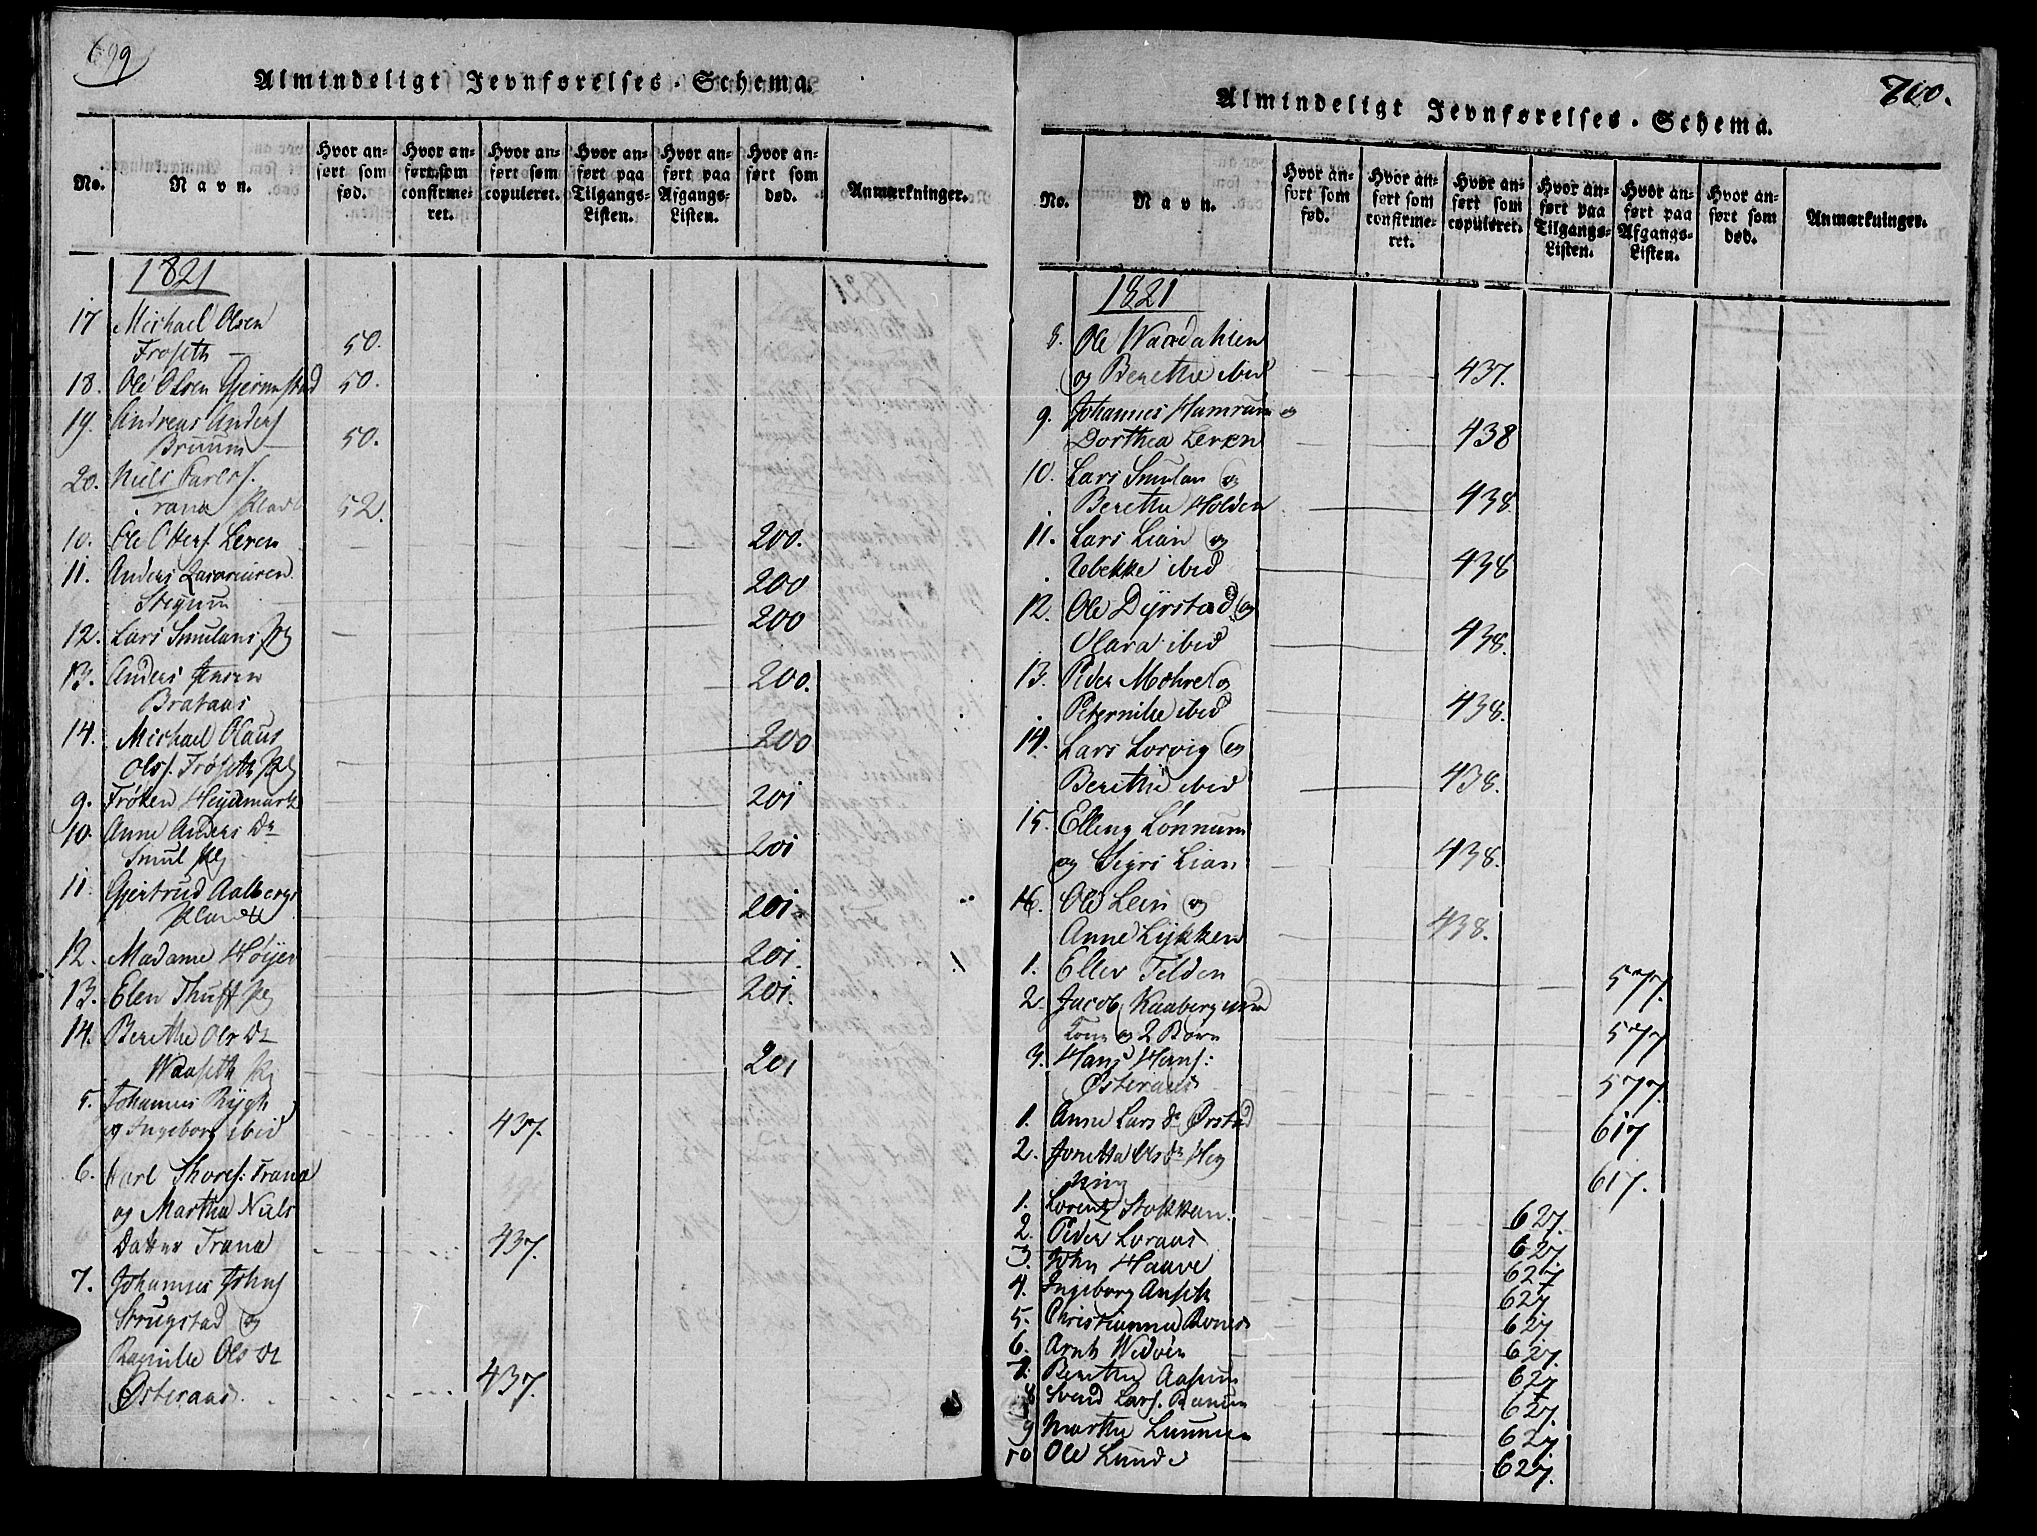 699
Almindeligt Jevnførelses-Schema.
No. Navn. Hvor anført som fød. Hvor anført som confirmeret. Hvor anført som copuleret. Hvor anført paa Tilgangs-Listen. Hvor anført paa Afgangs-Listen. Hvor anført som død. Anmærkninger.
1821
17 Michael Olsen
Froseth 50.
18. Ole Olsen Gjermstad 50.
19. Andreas Anders
Bruum 50.
20. Niels Carls.
52.
10. Ole Leren 200.
11. Anders
Stegum 200
12. Lars Smulans 200
13. Anders Jensen
Brataas 200.
14. Michael Olaus
Ols. Fröseth 200
9. Fröken Heydemark 201
10. Anne Anders Dr
Smul 201
11. Gjertrud Aalbergs
201
12. Madame Höyer 201.
13. Elen Thuff 201.
14. Berethe Ols Dr
Waaseth 201
5. Johannes Rygh
og Ingeborg ibid 437.
6. Karl Thores. Trana
og Martha Niels
Datter Trana 437.
7. Johannes Johns
Skrugstad og
Ols Dr
Østeraas. 437.
700.
Almindeligt Jevnførelses-Schema.
No. Navn. Hvor anført som fød. Hvor anført som confirmeret. Hvor anført som copuleret. Hvor anført paa Tilgangs-Listen. Hvor anført paa Afgangs-Listen. Hvor anført som død. Anmærkninger.
1821
8. Ole Wardahlen
og Berethe ibid 437.
9. Johannes Hamrum og
Dorthea Leren 438
10. Lars Smulan og
Berethe Holden 438
11. Lars Lian og
Rebekke ibid 438
12. Ole Dyrstad og
Olara ibid 438.
13. Peder Mohrel og
Peternille ibid 438.
14. Lars Lorvig og
Berethe ibid 438.
15. Elling Lönnum
og Sigri Lian 438.
16. Ole Lein og
Anne Lykken 438.
1. Ellev Tilden 577.
2. Jacob Raaberg med
Kone og 2 Børn 577
3. Hans Hans:
Østeraas 577.
1. Anne Lars Dr Ørstad 617
2. Jonetta Ols Dr Heg
617.
1. Lorentz Stokkan. 627.
2. Peder Loraas 627.
3. John Haave 627
4. Ingeborg Anseth 627.
5. Christianna 627.
6. Arnt Widøen 627.
7. Berethe Aasum 627
8 Svend Lars. Ranum 627.
9 Marthe 627.
10 Ole Lunde 627.